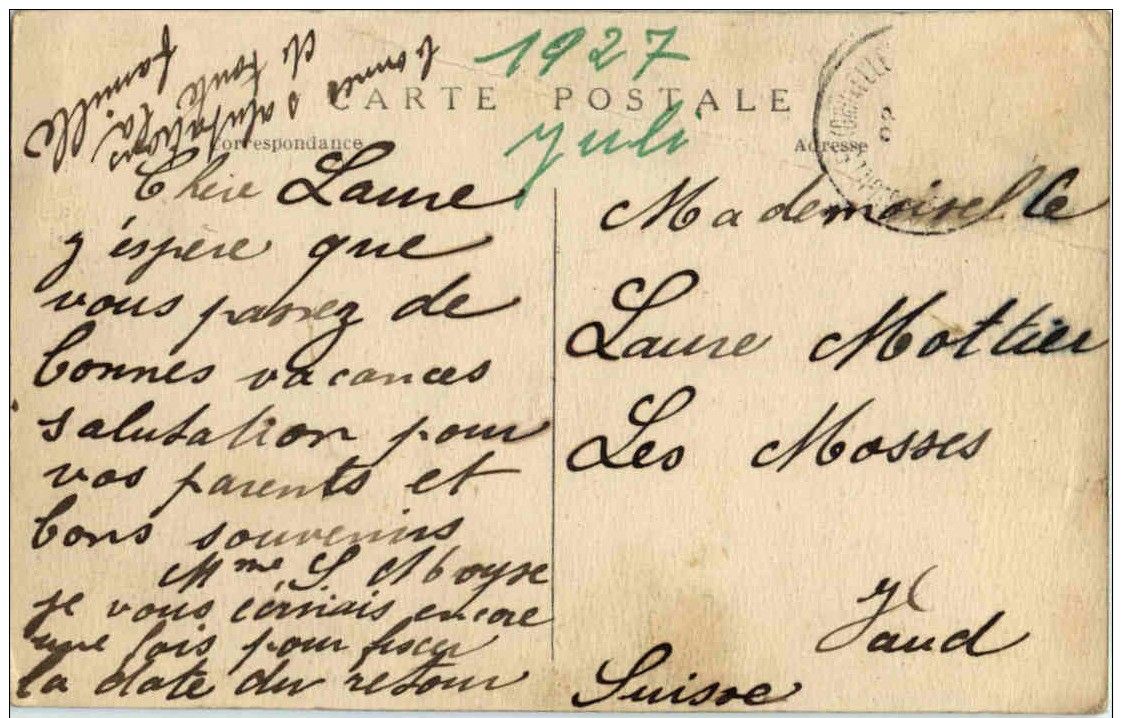 1927
CARTE POSTALE
Juli
Correspondance
Adresse
bonnes salutations
de toute la
famille
Chère Laure
j'espère que
vous passez de
bonnes vacances
salutation pour
vos parents et
bons souvenirs
Mme S Moyse
je vous écrirais encore
une fois pour fixer
la date du retour
Mademoiselle
Laure Mottier
Les Mosses
Vaud
Suisse